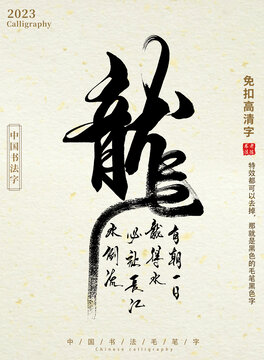 2023
Calligraphy
龍
免扣高清字
中国书法字
特效都可以去掉，
那就是黑色的毛笔黑色字
有朝一日
龍得水
必让长江
水倒流
中国书法毛笔字
Chinese calligraphy